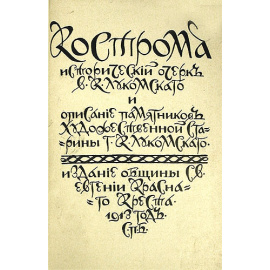 Кострома
исторический очеркъ
В. К. Лукомскаго
и
описаніе памятниковъ
художественной ста-
рины Г. К. Лукомскаго.
изданіе общины св.
Евгеніи Красна-
го Креста.
1913 годъ.
СПБ.